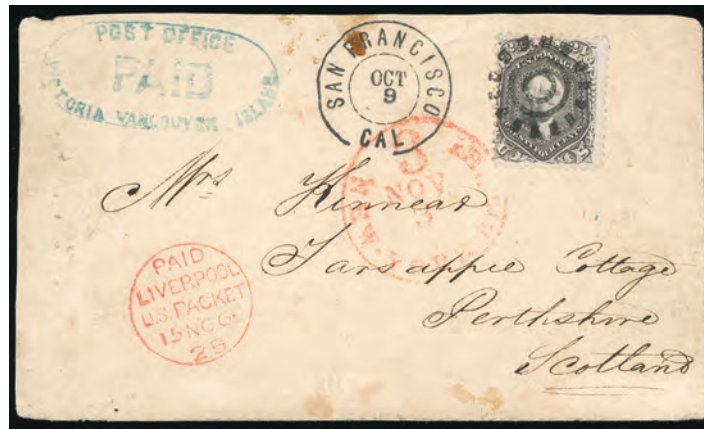 POST OFFICE
PAID
VICTORIA VANCOUVER ISLAND
SAN FRANCISCO
OCT
9
CAL
24 24
U.S. POSTAGE
3
NOV
3
NEW YORK
Mrs Kinnear
Tarsappie Cottage
Perthshire
Scotland
PAID
LIVERPOOL
U.S. PACKET
15 NO 6
2B